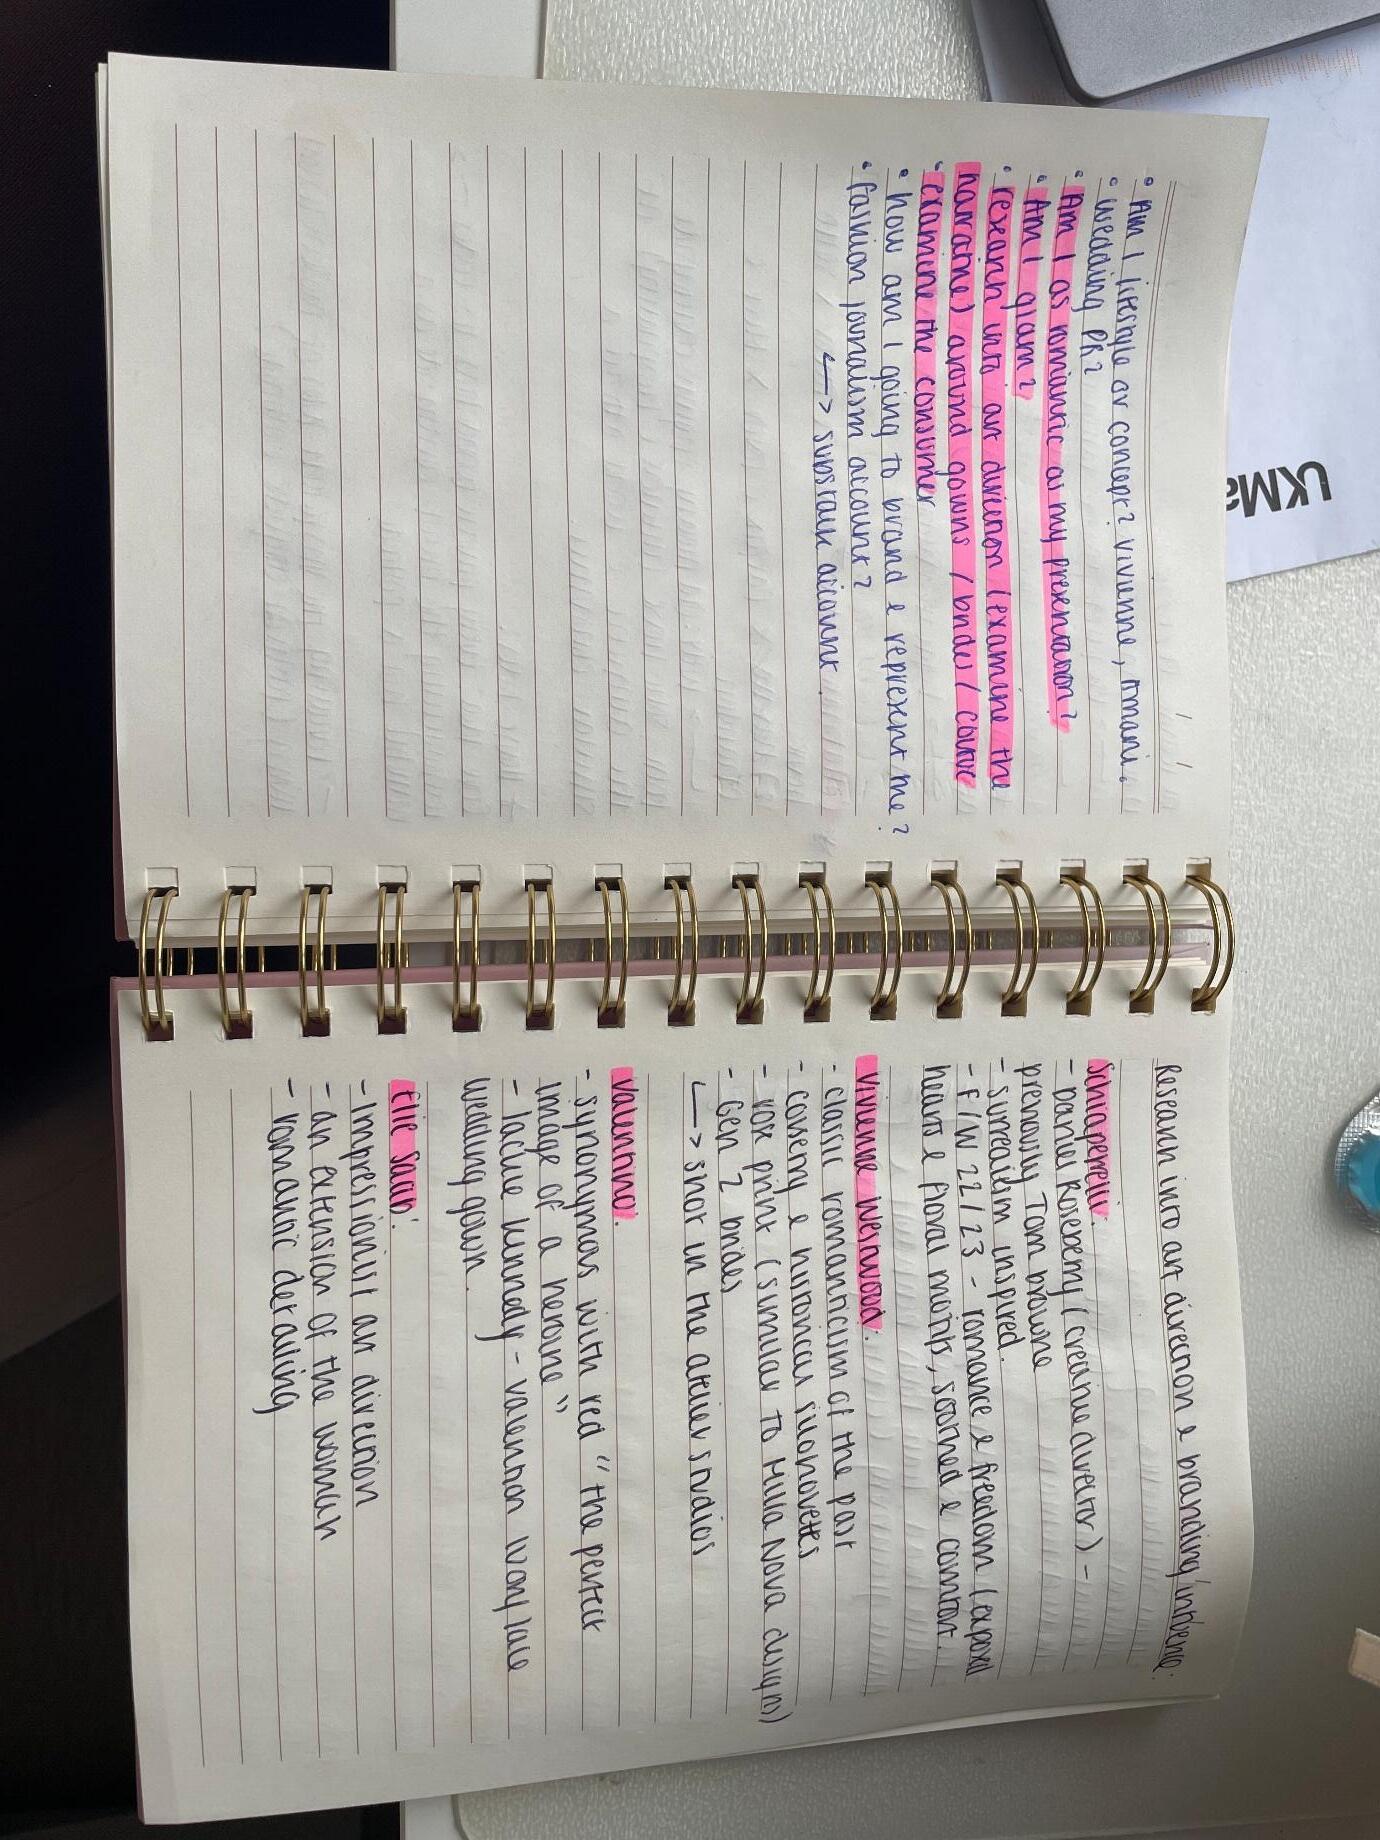 • Am I lifestyle or concept? Vivienne, Amani.
• wedding PR?
• Am I as romantic as my presentation?
• Am I glam?
• research into art direction (examine the
narrative) around gowns / brides / couture
• examine the consumer
• how am I going to brand & represent me?
• fashion journalism account?
↳ substack account.
Research into art direction & branding/influence:
Schiaperelli:
- Daniel Roseberry (creative director) -
previously Tom browne
- surrealism inspired.
- F/W 22/23 - romance & freedom (exposed
hearts & floral motifs, scorned & comfort.
Vivienne Westwood:
- classic romanticism of the past
- corsetry & historical silhouettes
- rose print (similar to Milla Nova designs)
- Gen Z brides
↳ shot in the atelier studios
Valentino:
- synonymous with red "the perfect
image of a heroine"
- Jackie Kennedy - valention ivory lace
wedding gown.
Elie Saab:
- Impressionist art direction
- an extension of the woman
- romantic detailing
UKMa